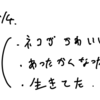 ・ネコがかわいい
・あったかくなった
・生きてた.